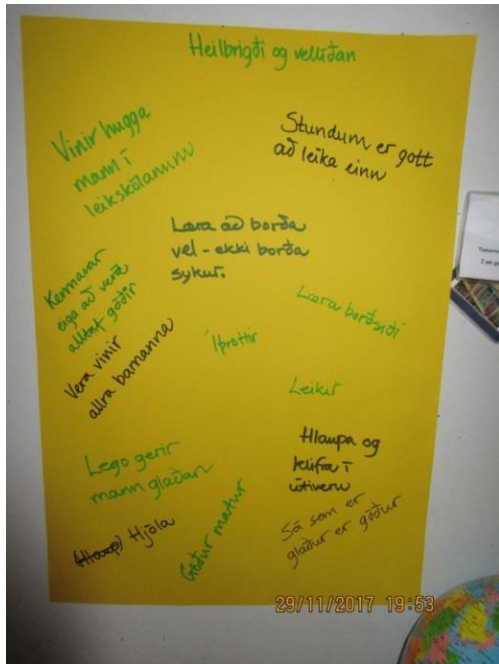 Heilbrigði og vellíðan
Vinir hugga
mann í
leikskólanum
Stundum er gott
að leika einn
Læra að borða
vel - ekki borða
sykur.
Kennarar
eiga að vera
alltaf góðir
Vera vinir
allra barnanna
Íþróttir
Læra borðsiði
Leikir
Lego gerir
mann glaðan
Hlaupa og
klifra í
útiveru
Hjóla
Góður matur
Sá som er
glaður er góður
29/11/2017 19:53